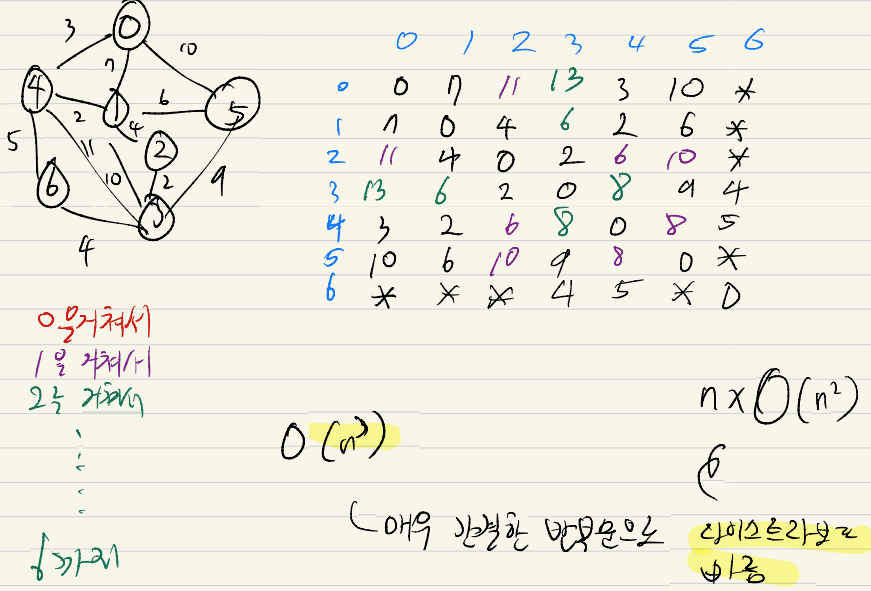 0
3
7
10
4
2
1
6
5
4
5
11
2
10
2
9
6
3
4
0 1 2 3 4 5 6
0 0 7 11 13 3 10 *
1 7 0 4 6 2 6 *
2 11 4 0 2 6 10 *
3 13 6 2 0 8 9 4
4 3 2 6 8 0 8 5
5 10 6 10 9 8 0 *
6 * * * 4 5 * 0
0을 거쳐서
1을 거쳐서
2를 거쳐서
6까지
O(n³)
n x O(n²)
매우 간결한 반복문으로 다익스트라보다
빠름